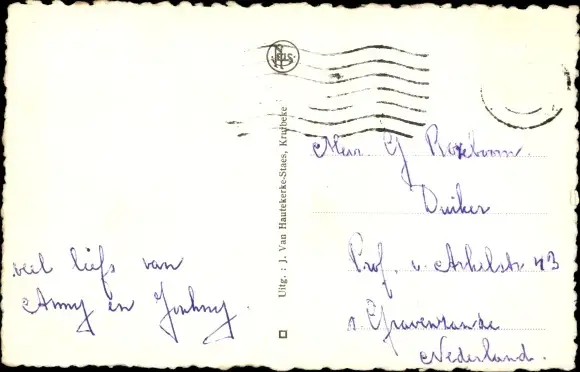 NELS
Uitg. : J. Van Hautekerke-Staes, Kruibeke
veel liefs van
Anny en Johnny.
Mevr. G Rozeboom.
Duiker
Prof. v. Arkelstr 43
s Gravenzande
Nederland.